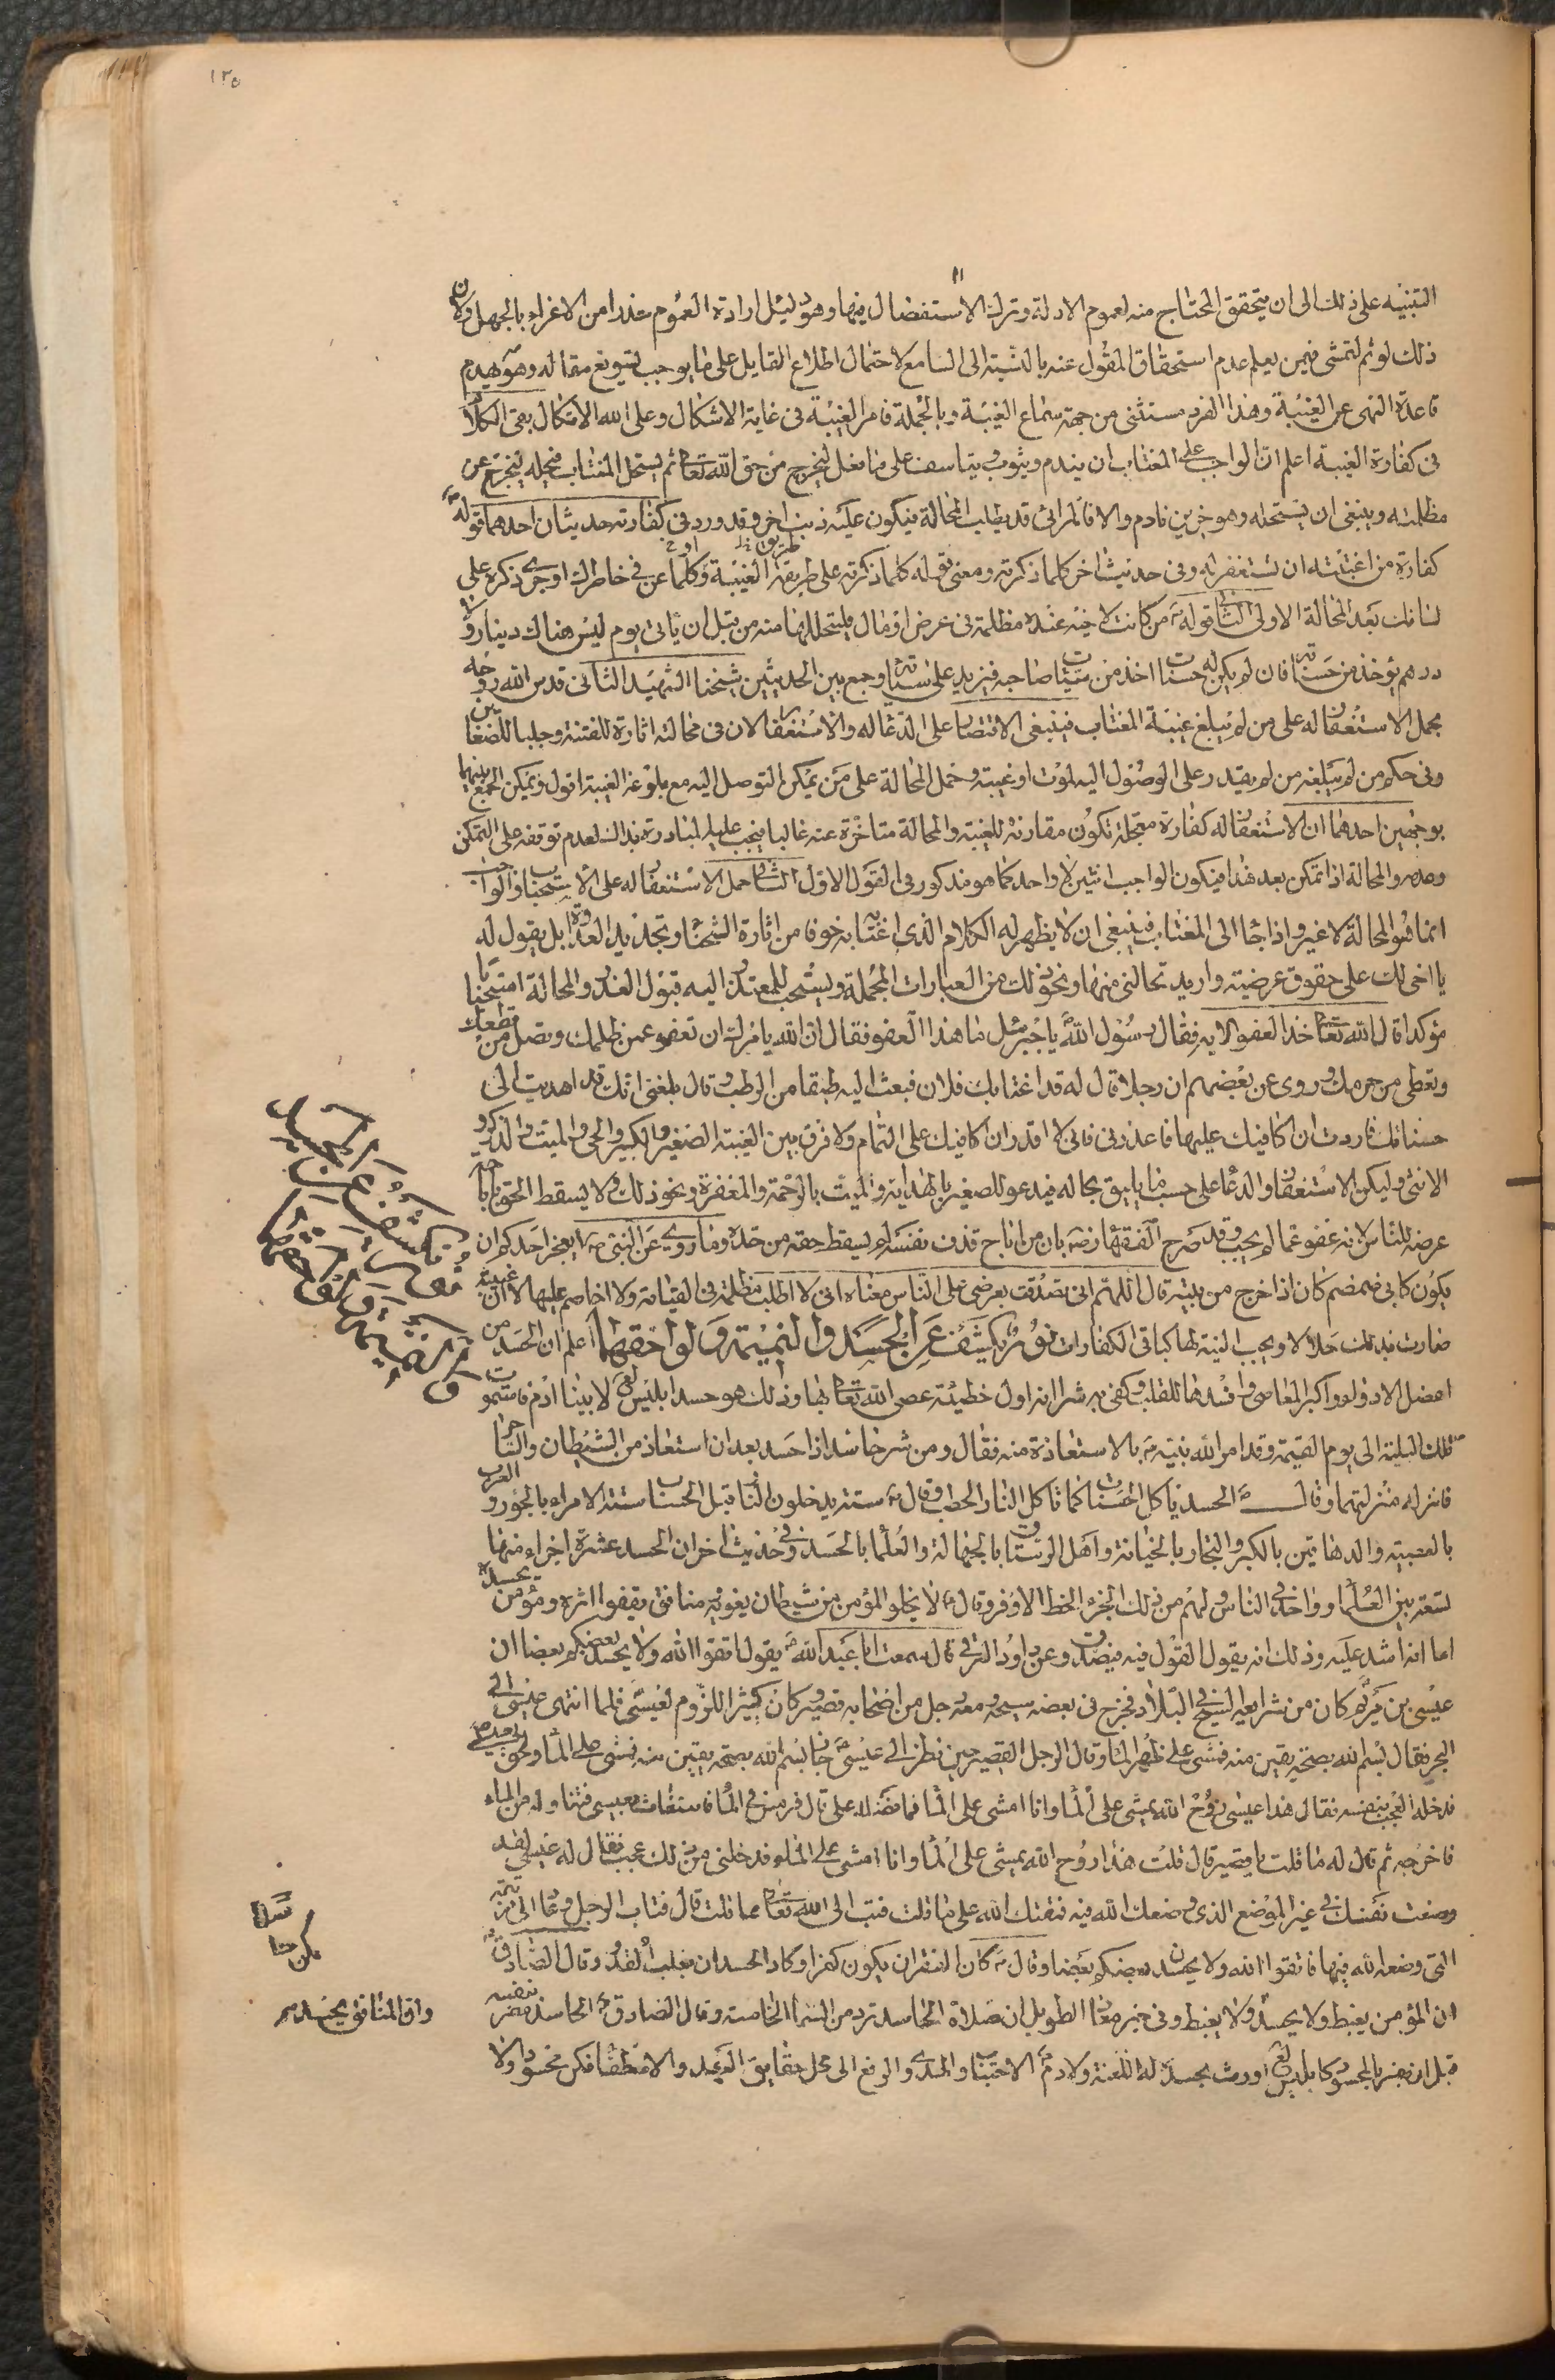 ١٢٥
التنبيه على ذلك الى ان يتحقق المحتاج منه لعموم الادلة وترك الاستفصال فيها وهو دليل ارادة العموم حذرا من الاغراء بالجهل ولان
ذلك لو تم لتمشى فيمن يعلم عدم استحقاق المقول عنه بالنسبة الى السامع لاحتمال اطلاع القايل على ما يوجب تسويغ مقاله وهو يهدم
قاعدة النهى عن الغيبة وهذا الفرد مستثنى من جهة سماع الغيبة وبالجملة فامر الغيبة في غاية الاشكال وعلى الله الاتكال بقى الكلام
في كفارة الغيبة اعلم ان الواجب على المغتاب ان يندم ويتوب ويتاسف على ما فعل ليخرج من حق الله تعالى ثم يستحل المغتاب فيحله ليخرج عن
مظلمته وينبغى ان يستحله وهو حزين نادم والا فالمرائى قد يطلب المحالة فيكون عليه ذنب اخر وقد ورد في كفارته حديثان احدهما قوله
كفارة من اغتبته ان تستغفر له وفى حديث اخر كلما ذكرته ومعنى قوله كلما ذكرته على طريق الغيبة او كلما عن في خاطرك او جرى ذكره على
لسانك بعد المحالة الاولى الثانى قوله من كانت لاخيه عنده مظلمة فى عرض او مال فليتحللها منه من قبل ان ياتى يوم ليس هناك دينار ولا
درهم يؤخذ من حسناته فان لم يكن له حسنات اخذ من سيئات صاحبه فيزيد على سيئاته وجمع بين الحديثين شيخنا الشهيد الثانى قدس الله روحه
بحمل الاستغفار له على من لم يبلغ غيبة المغتاب فينبغى الاقتصار على الدعاء له والاستغفار لان في محالته اثارة للفتنة وجلبا للضغاين
وفى حكم من لم يبلغه من لم يقدر على الوصول اليه لموت او غيبة وحمل المحالة على من يمكن التوصل اليه مع بلوغه الغيبة اقول ويمكن الجمع بينهما
بوجهين احدهما ان الاستغفار له كفارة معجلة تكون مقارنة للغيبة والمحالة متاخرة عنه غالبا فيجب عليه المبادرة بذلك لعدم توقفه على التمكن
وعدمه والمحالة اذا تمكن بعد هذا فيكون الواجب اثنين لا واحد كما هو مذكور فى القول الاول الثانى حمل الاستغفار له على الاستحباب والواجب
انما هو المحالة لا غير واذا جاء الى المغتاب فينبغى ان لا يظهر له الكلام الذى اغتابه خوفا من اثارة الشحناء وتجديد العداوة بل يقول له
يا اخى لك على حقوق عرضية واريد تحاللنى منها ونحو ذلك من العبارات المجملة ويستحب للمعتذر اليه قبول العذر والمحالة استحبابا
مؤكدا قال الله تعالى خذ العفو الاية فقال رسول الله يا جبرئيل ما هذا العفو فقال ان الله يامرك ان تعفو عمن ظلمك وتصل من قطعك
وتعطى من حرمك وروى عن بعضهم ان رجلا قال له قد اغتابك فلان فبعث اليه طبقا من الرطب وقال بلغنى انك قد اهديت الى
حسناتك فاردت ان اكافيك عليها فاعذرنى فانى لا اقدر ان اكافيك على التمام ولا فرق بين الغيبة الصغير والكبير والحى والميت والذكر و
الانثى وليكن الاستغفار والدعاء على حسب ما يليق بحاله فيدعو للصغير بالهداية وللميت بالرحمة والمغفرة ونحو ذلك ولا يسقط الحق باباحة
عرضه للناس لانه عفو عما لم يجب وقد صرح الفقهاء بان من اباح قذف نفسه لم يسقط حقه من حده وما روى عن النبى ايعجز احدكم ان
يكون كابى ضمضم كان اذا خرج من بيته قال اللهم انى تصدقت بعرضى على الناس معناه انى لا اطلب مظلمة فى القيامة ولا اخاصم عليها لا ان غيبته
صارت بذلك حلالا ويجب النية لها كباقى الكفارات نور يكشف عن الحسد والنميمة ولواحقهما اعلم ان الحسد من
افضل الادواء واكبر المعاصى وافسدها للقلب وكفى به شرا انه اول خطيئة عصى الله تعالى بها وذلك هو حسد ابليس لابينا ادم فاستمرت
تلك البلية الى يوم القيمة وقد امر الله نبيه بالاستعاذة منه فقال ومن شر حاسد اذا حسد بعد ان استعاذ من الشيطان والساحر
فانزله منزلتهما وقال الحسد ياكل الحسنات كما تاكل النار الحطب وقال ستة يدخلون النار قبل الحساب بستة الامراء بالجور والعرب
بالعصبية والدهاقين بالكبر والتجار بالخيانة واهل الرستاق بالجهالة والعلماء بالحسد وفي حديث اخر ان الحسد عشرة اجزاء منها
تسعة بين العلماء وواحد في الناس ولهم من ذلك الجزء الحظ الاوفر وقال لا يخلو المؤمن من شيطان يغويه ومنافق يقفو اثره ومؤمن يحسده
اما انه اشد عليه وذلك انه يقول القول فيه فيصدق وعن داود الرقى قال سمعت ابا عبد الله يقول اتقوا الله ولا يحسد بعضكم بعضا ان
عيسى بن مريم كان من شرايعه السيح في البلاد فخرج فى بعض سيحه ومعه رجل من اصحابه قصير وكان كثير اللزوم لعيسى فلما انتهى عيسى الى
البحر فقال بسم الله بصحة يقين منه فمشى على ظهر الماء وقال الرجل القصير حين نظر الى عيسى جازه بسم الله بصحة يقين منه فمشى على الماء ولحق بعيسى
فدخله العجب بنفسه فقال هذا عيسى روح الله يمشى على الماء وانا امشى على الماء فما فضله على قال فرمس في الماء فاستغاث بعيسى فتناوله من الماء
فاخرجه ثم قال له ما قلت يا قصير قال قلت هذا روح الله يمشى على الماء وانا امشى على الماء فدخلنى من ذلك عجب فقال له عيسى لقد
وضعت نفسك في غير الموضع الذى وضعك الله فيه فمقتك الله على ما قلت فتب الى الله تعالى مما قلت قال فتاب الرجل وعاد الى مرتبته
التى وضعه الله فيها فاتقوا الله ولا يحسدن بعضكم بعضا وقال كاد الفقر ان يكون كفرا وكاد الحسد ان يغلب القدر وقال الصادق
ان المؤمن يغبط ولا يحسد ولا يغبط وفى خبر معاذ الطويل ان صلاة الحاسد ترد من السماء الخامسة وقال الصادق الحاسد مضر بنفسه
قبل ان يضر بالمحسود كابليس اورث بحسده له اللعنة ولادم الاجتباء والهدى والرفع الى محل حقايق العهد والاصطفاء فكن محسودا ولا
نور يكشف عن الحسد
والنميمة ولواحقهما
تكن حاسدا
وان المنافق يحسد